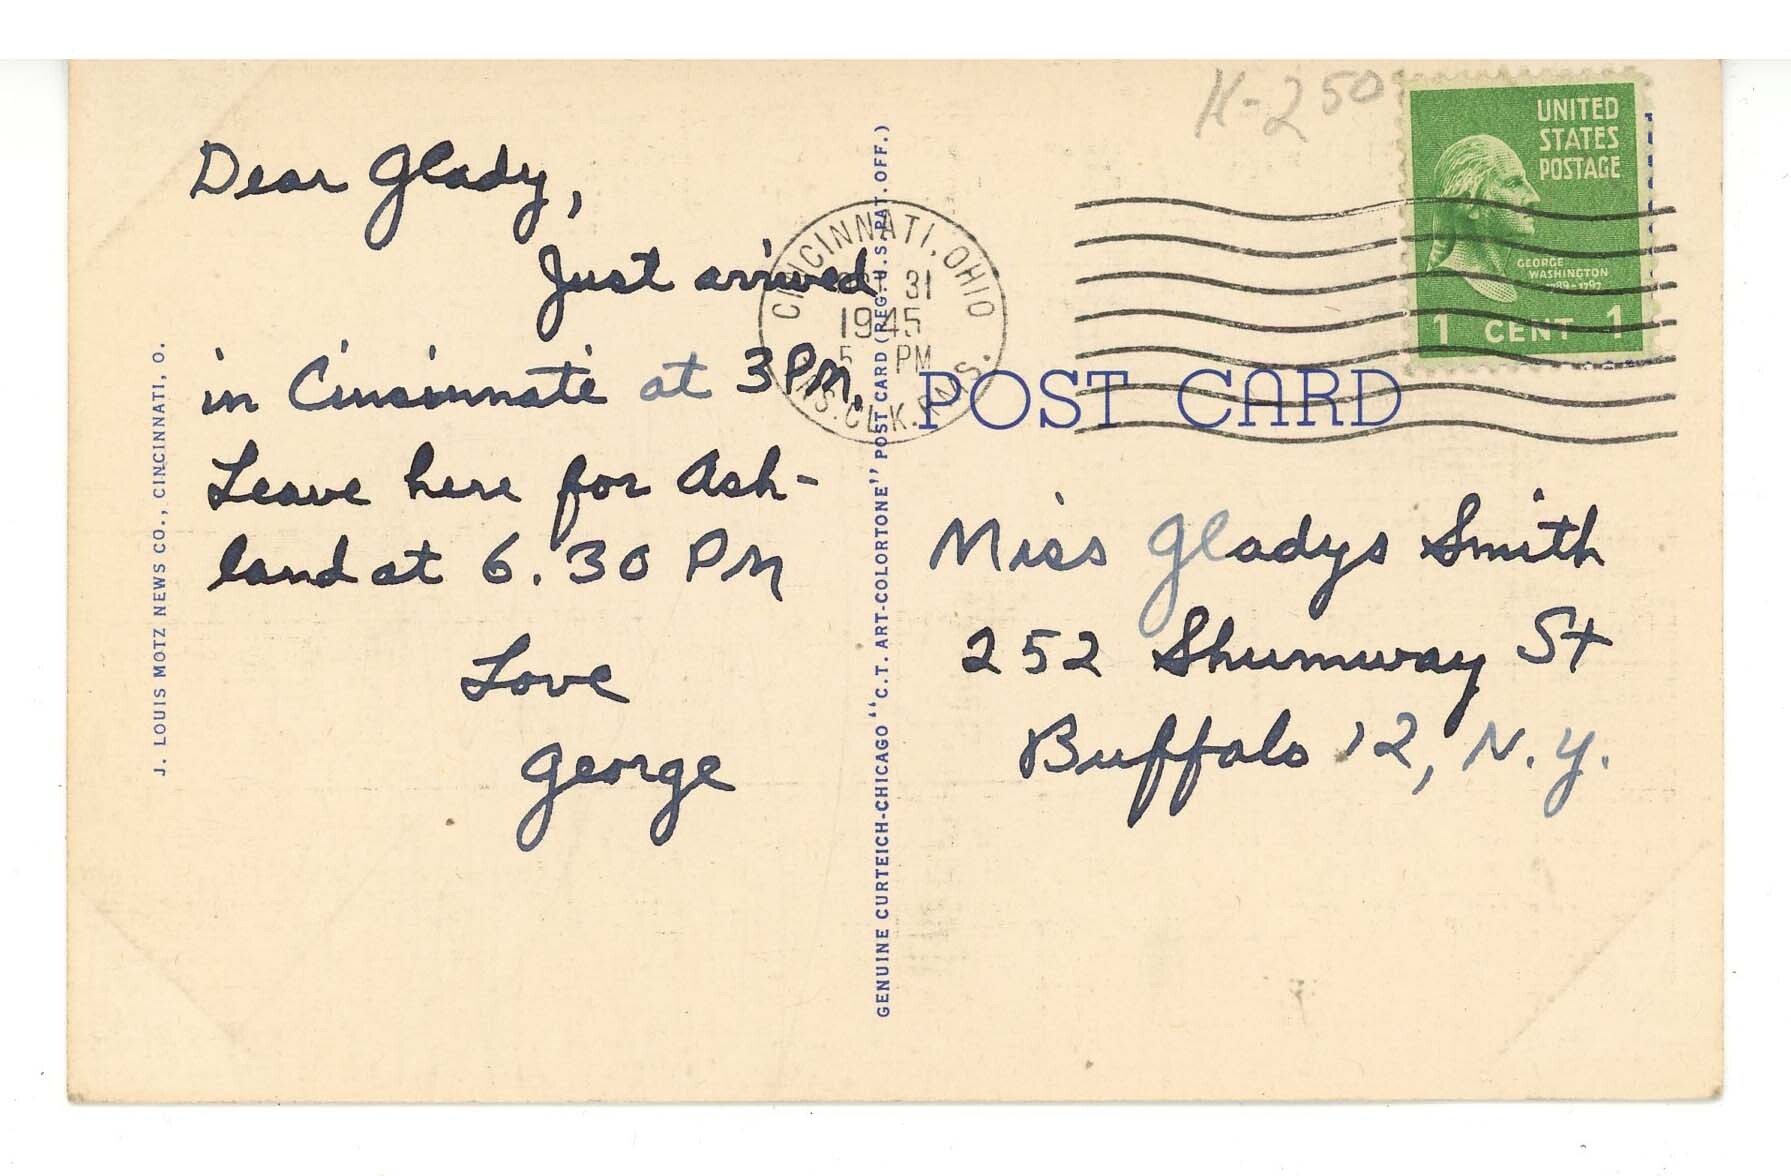 H-250
UNITED
STATES
POSTAGE
GEORGE
WASHINGTON
1789-1797
1 CENT 1
CINCINNATI, OHIO
31
1945
5 PM
Dear Glady,
Just arrived
in Cincinnati at 3PM.
Leave here for Ash-
land at 6.30 PM
Love
George
J. LOUIS MOTZ NEWS CO., CINCINNATI, O.
GENUINE CURTEICH-CHICAGO "C.T. ART-COLORTONE" POST CARD (REG. U.S. PAT. OFF.)
POST CARD
Miss Gladys Smith
252 Shumway St
Buffalo 12, N.Y.